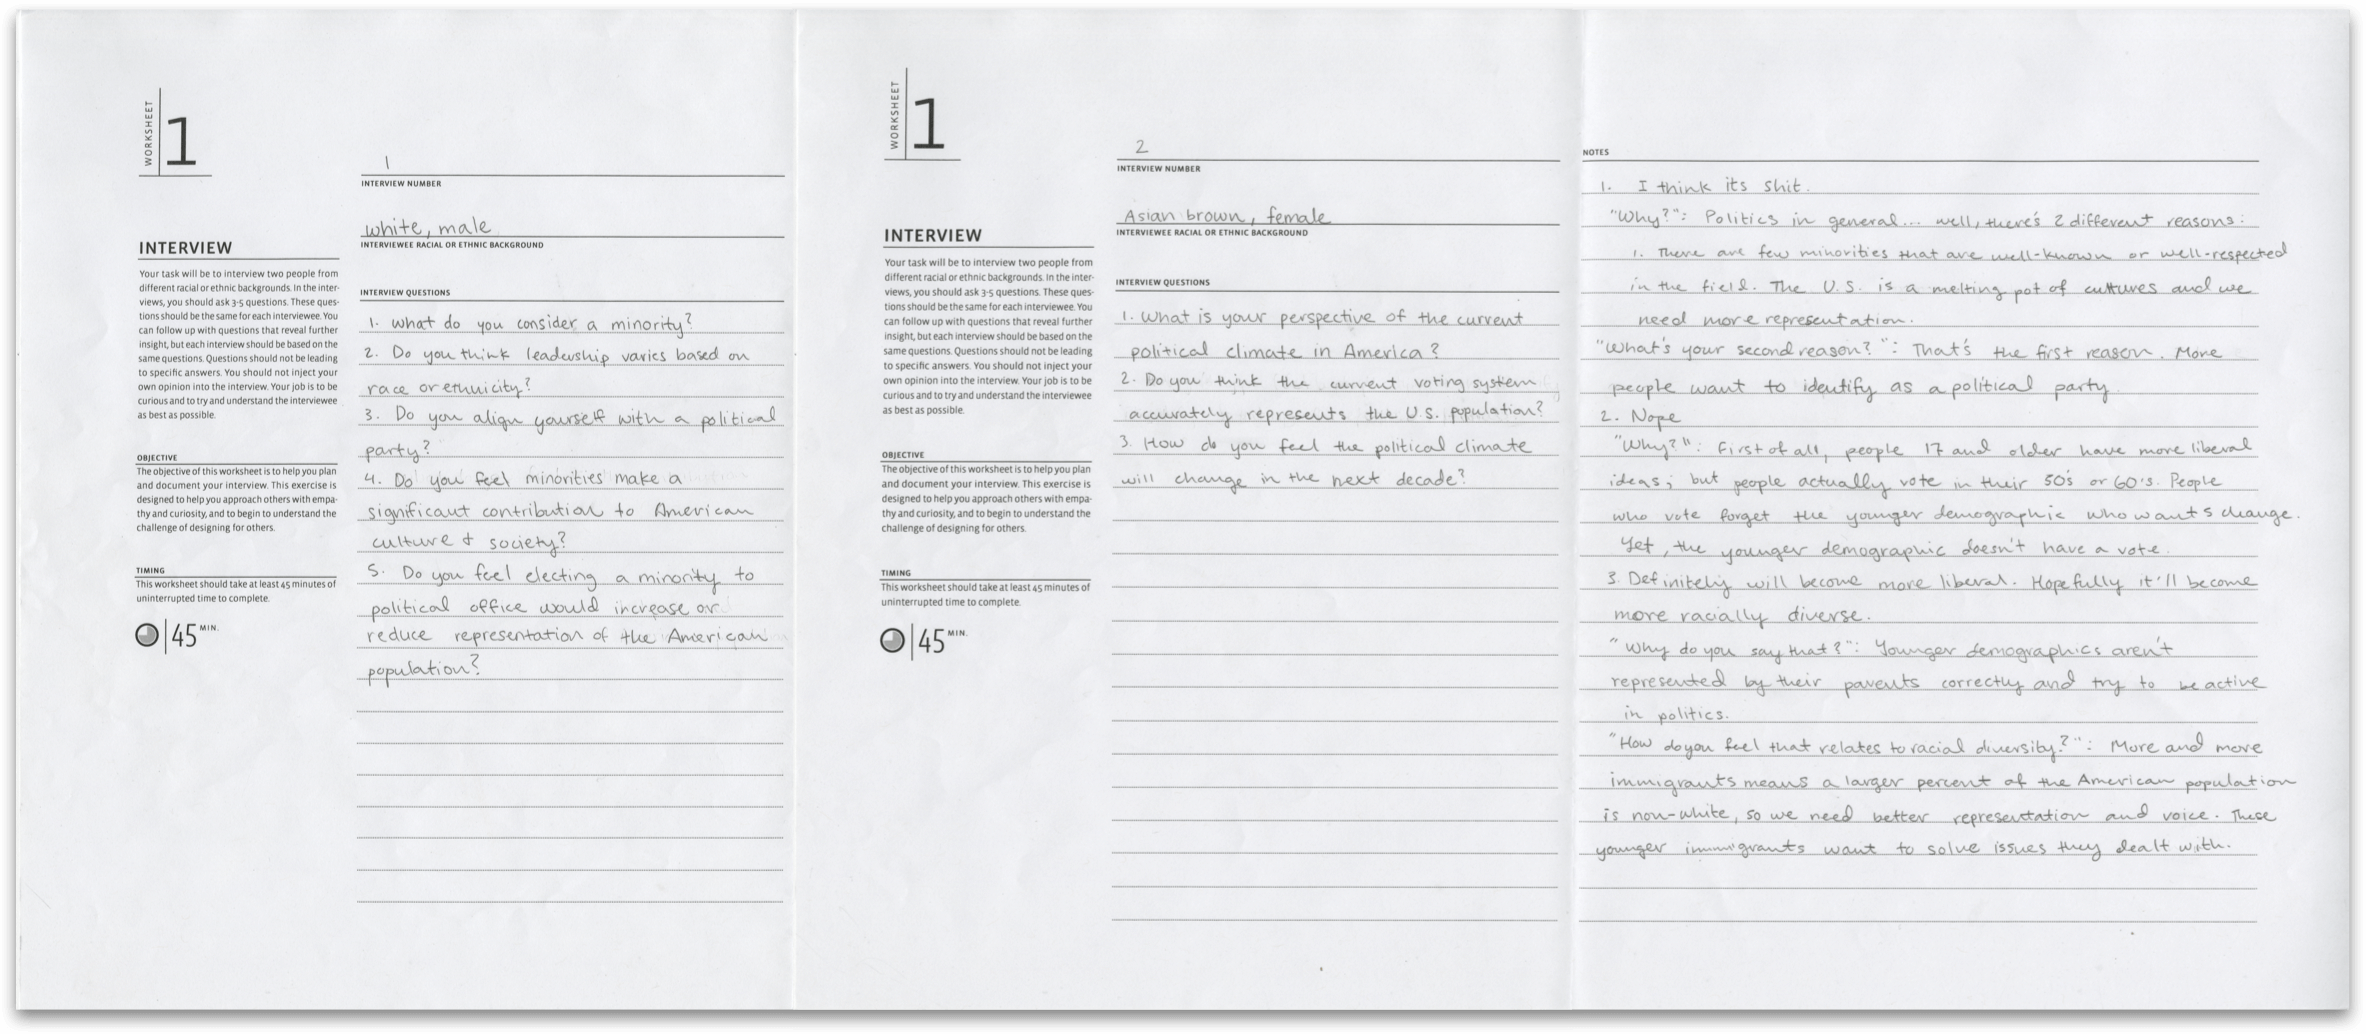 WORKSHEET
1
1
INTERVIEW NUMBER
white, male
INTERVIEWEE RACIAL OR ETHNIC BACKGROUND
INTERVIEW
Your task will be to interview two people from
different racial or ethnic backgrounds. In the inter-
views, you should ask 3-5 questions. These ques-
tions should be the same for each interviewee. You
can follow up with questions that reveal further
insight, but each interview should be based on the
same questions. Questions should not be leading
to specific answers. You should not inject your
own opinion into the interview. Your job is to be
curious and to try and understand the interviewee
as best as possible.
OBJECTIVE
The objective of this worksheet is to help you plan
and document your interview. This exercise is
designed to help you approach others with empa-
thy and curiosity, and to begin to understand the
challenge of designing for others.
TIMING
This worksheet should take at least 45 minutes of
uninterrupted time to complete.
45 MIN.
INTERVIEW QUESTIONS
1. What do you consider a minority?
2. Do you think leadership varies based on
race or ethnicity?
3. Do you align yourself with a political
party?
4. Do you feel minorities make a
significant contribution to American
culture & society?
5. Do you feel electing a minority to
political office would increase or
reduce representation of the American
population?
WORKSHEET
1
2
INTERVIEW NUMBER
Asian brown, female
INTERVIEWEE RACIAL OR ETHNIC BACKGROUND
INTERVIEW
Your task will be to interview two people from
different racial or ethnic backgrounds. In the inter-
views, you should ask 3-5 questions. These ques-
tions should be the same for each interviewee. You
can follow up with questions that reveal further
insight, but each interview should be based on the
same questions. Questions should not be leading
to specific answers. You should not inject your
own opinion into the interview. Your job is to be
curious and to try and understand the interviewee
as best as possible.
OBJECTIVE
The objective of this worksheet is to help you plan
and document your interview. This exercise is
designed to help you approach others with empa-
thy and curiosity, and to begin to understand the
challenge of designing for others.
TIMING
This worksheet should take at least 45 minutes of
uninterrupted time to complete.
45 MIN.
INTERVIEW QUESTIONS
1. What is your perspective of the current
political climate in America?
2. Do you think the current voting system
accurately represents the U.S. population?
3. How do you feel the political climate
will change in the next decade?
NOTES
1. I think its shit.
"Why?": Politics in general.... well, there's 2 different reasons:
1. There are few minorities that are well-known or well-respected
in the field. The U.S. is a melting pot of cultures and we
need more representation.
"What's your second reason?": That's the first reason. More
people want to identify as a political party.
2. Nope
"Why?": First of all, people 17 and older have more liberal
ideas; but people actually vote in their 50's or 60's. People
who vote forget the younger demographic who wants change.
Yet, the younger demographic doesn't have a vote.
3. Definitely will become more liberal. Hopefully it'll become
more racially diverse.
"Why do you say that?": Younger demographics aren't
represented by their parents correctly and try to be active
in politics.
"How do you feel that relates to racial diversity?": More and more
immigrants means a larger percent of the American population
is non-white, so we need better representation and voice. These
younger immigrants want to solve issues they dealt with.